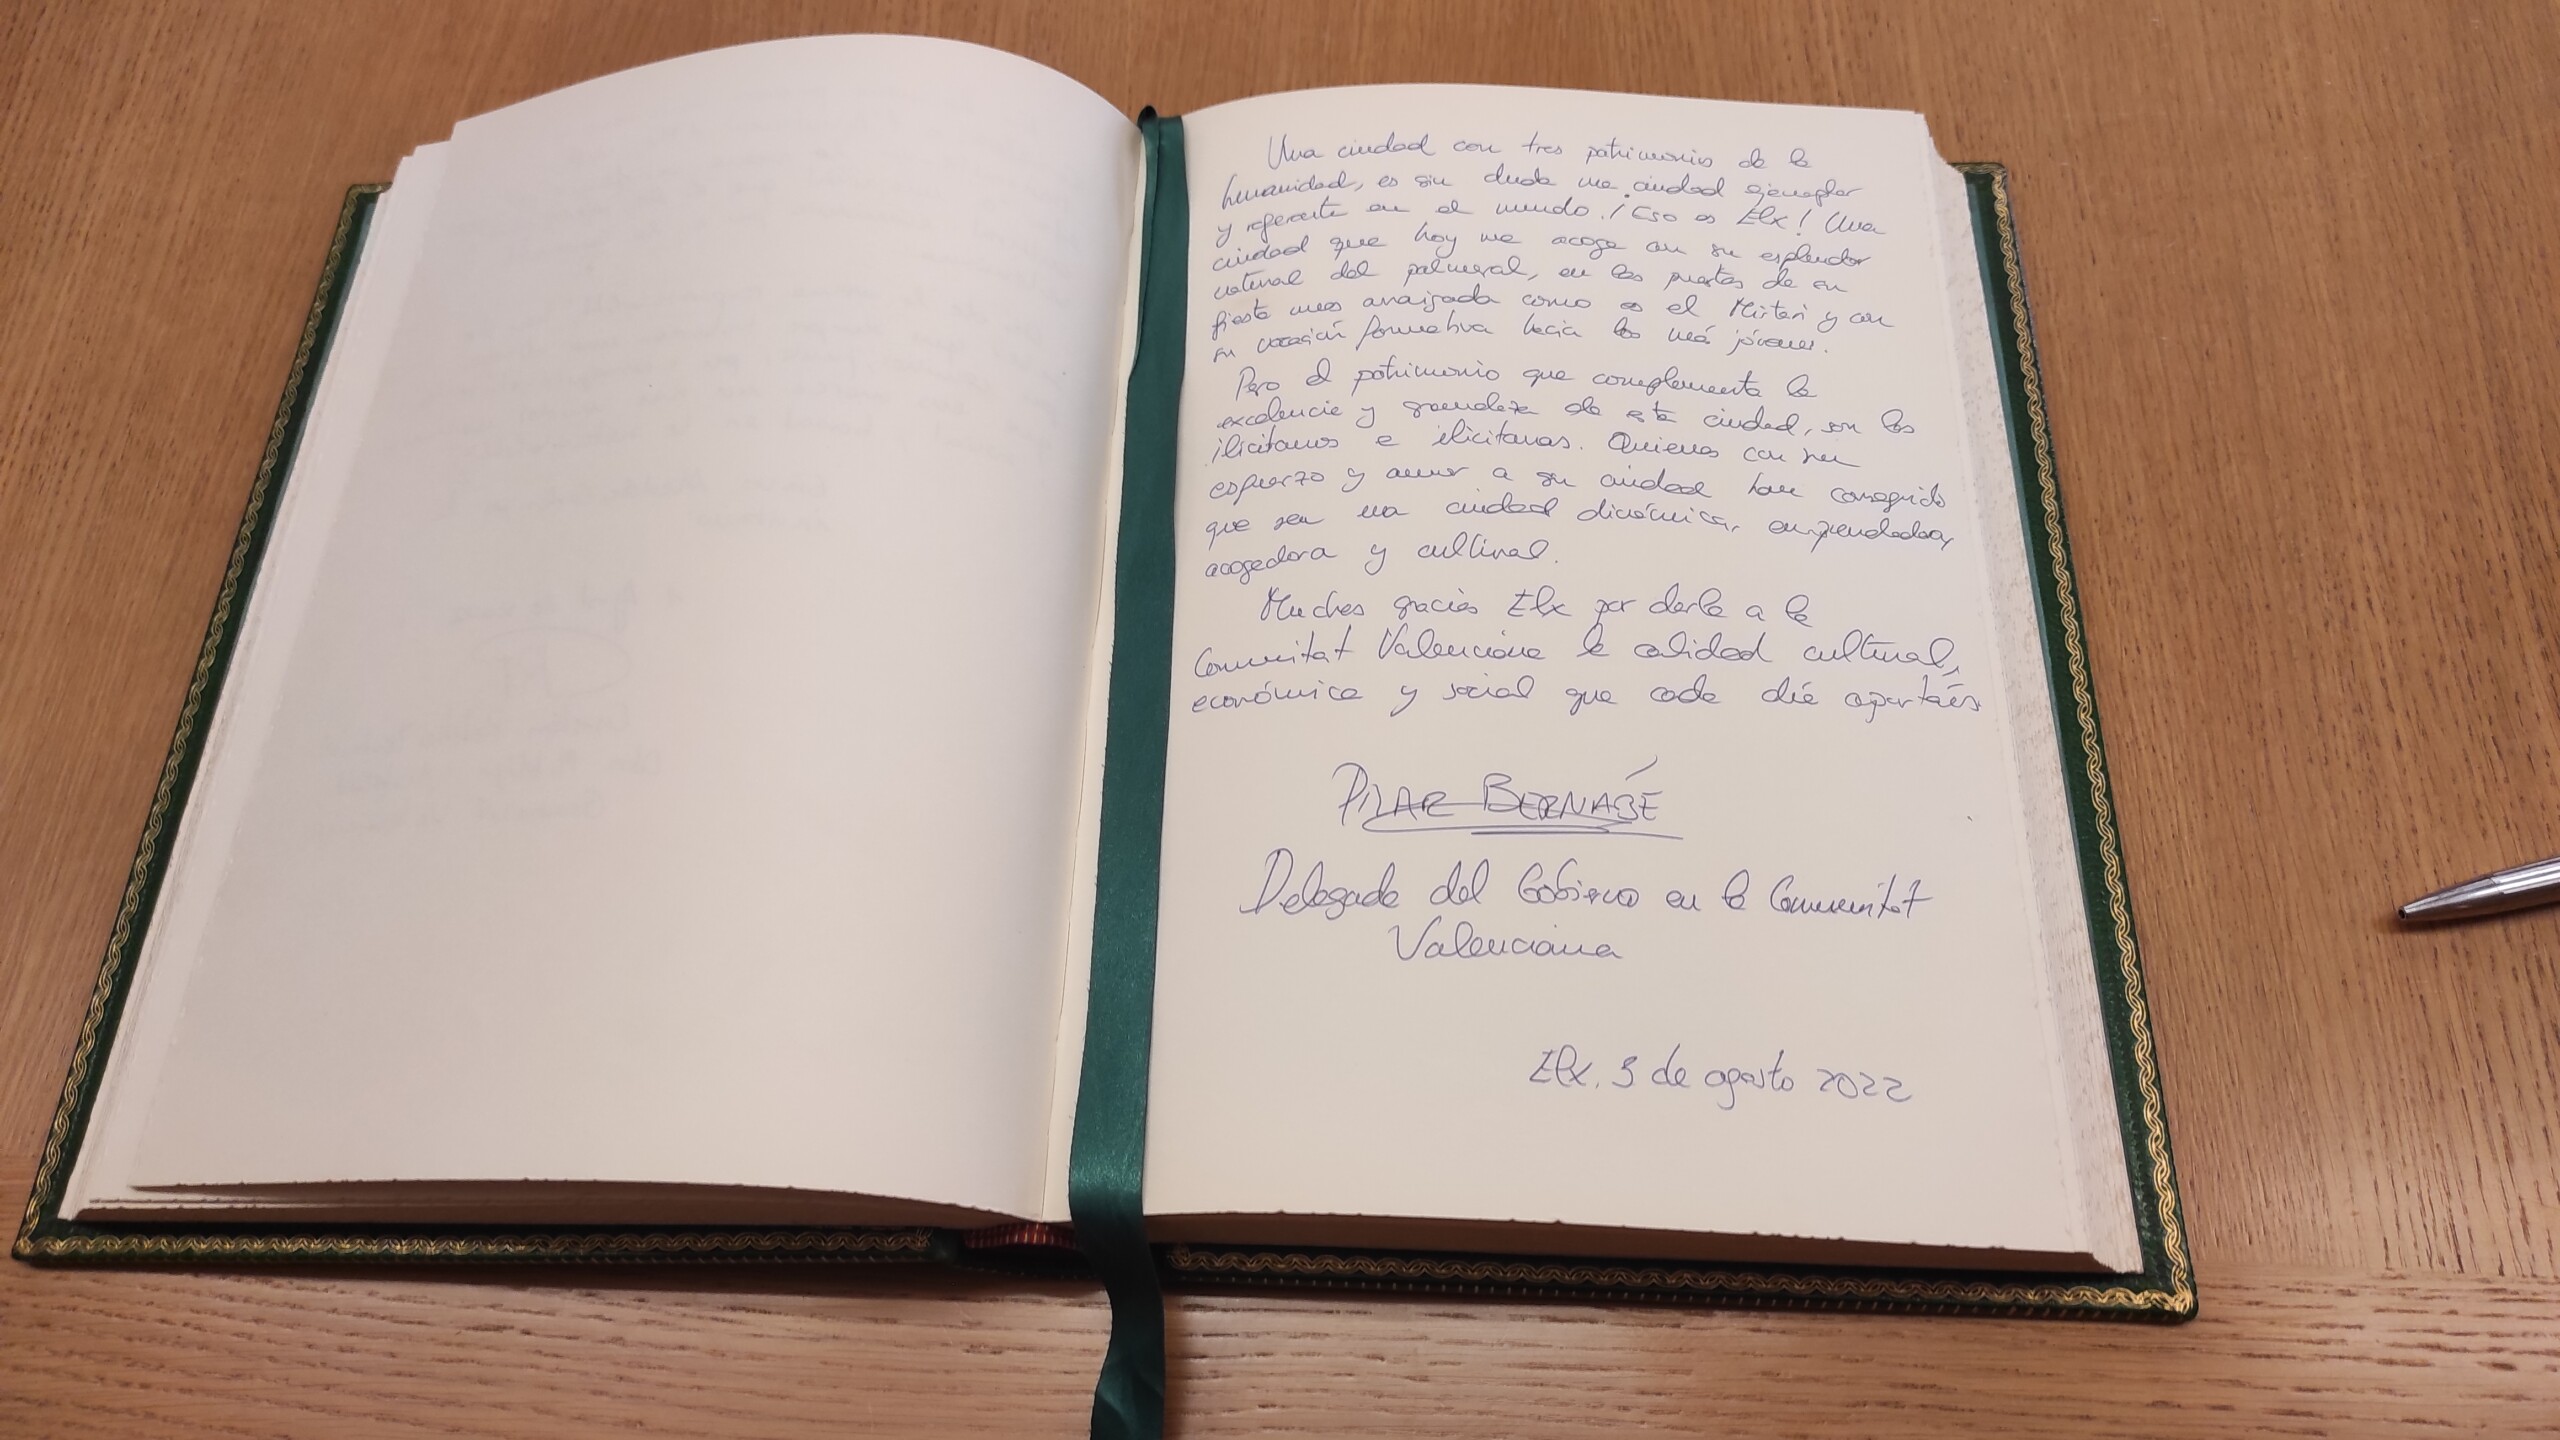 Una ciudad con tres patrimonios de la
humanidad, es sin duda una ciudad ejemplar
y referente en el mundo. ¡Eso es Elx! Una
ciudad que hoy me acoge en su esplendor
natural del palmeral, en las puertas de su
fiesta mas arraigada como es el Misteri y con
su vocación formativa hacia los más jóvenes.
Pero el patrimonio que complementa la
excelencia y grandeza de esta ciudad, son los
ilicitanos e ilicitanas. Quienes con su
esfuerzo y amor a su ciudad han conseguido
que sea una ciudad dinámica, emprendedora,
acogedora y cultural.
Muches gracies Elx por darle a la
Comunitat Valenciana la calidad cultural,
económica y social que cada día aportáis
PILAR BERNABÉ
Delegada del Gobierno en la Comunitat
Valenciana
Elx, 3 de agosto 2022